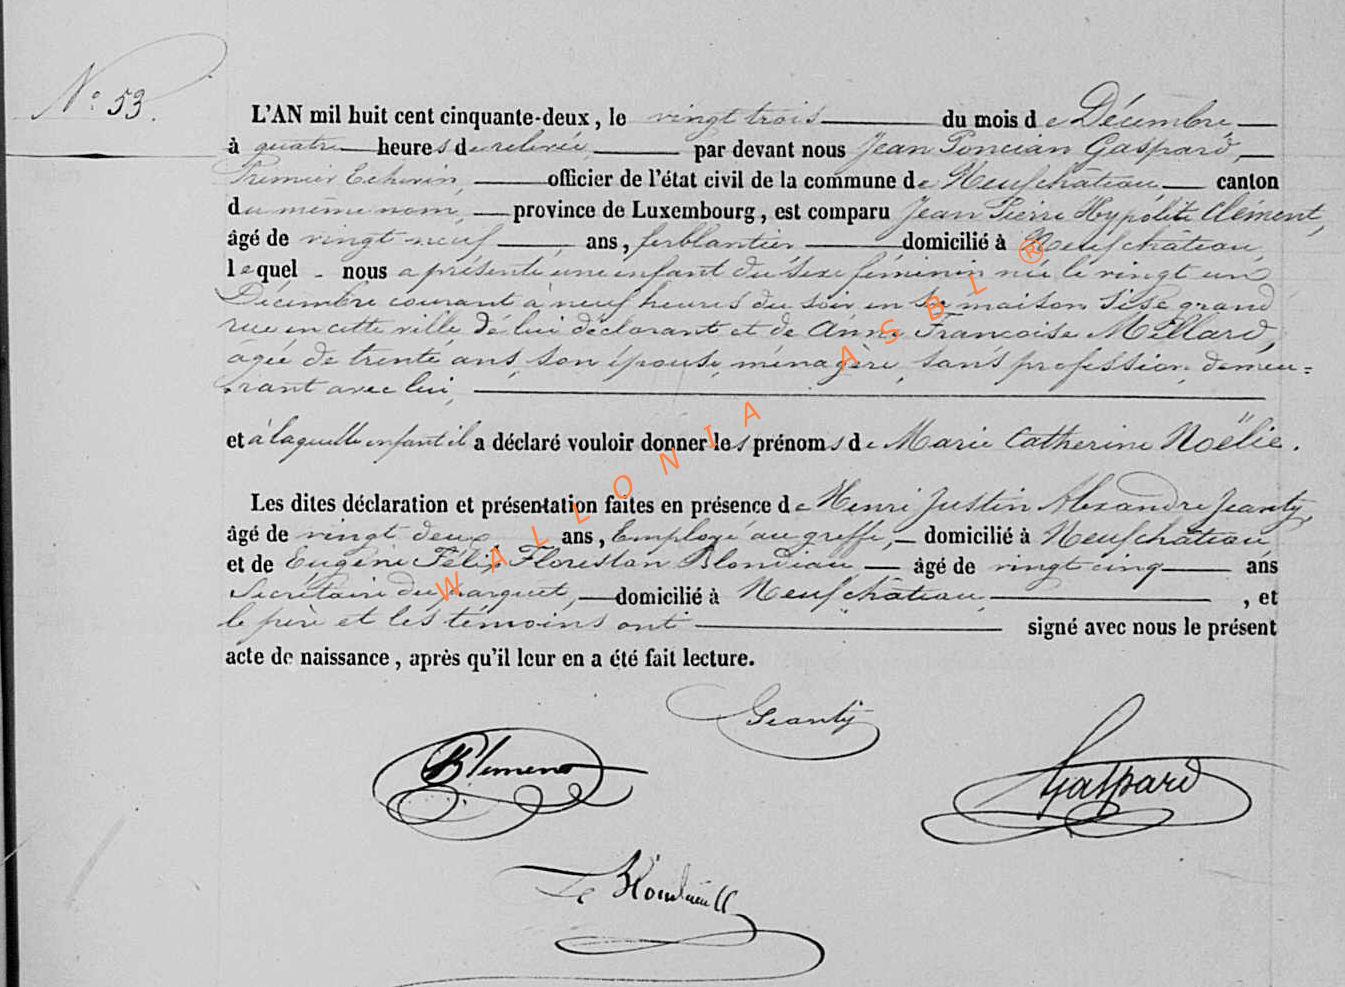 N° 53.
L'AN mil huit cent cinquante-deux, le vingt trois du mois de Décembre
à quatre heures de relevée, par devant nous Jean Poncian Gaspard,
Premier Echevin, officier de l'état civil de la commune de Neufchâteau canton
du même nom, province de Luxembourg, est comparu Jean Pierre Hypolite Clément,
âgé de vingt neuf ans, ferblantier domicilié à Neufchâteau,
lequel nous a présenté une enfant du sexe féminin née le vingt un
Décembre courant à neuf heures du soir en sa maison sise grand
rue en cette ville de lui déclarant et de Anne Françoise Millard,
âgée de trente ans, son épouse, ménagère, sans profession, demeu=
rant avec lui,
et à laquelle enfant il a déclaré vouloir donner les prénoms de Marie Catherine Noëlie.
Les dites déclaration et présentation faites en présence de Henri Justin Alexandre Jeanty,
âgé de vingt deux, ans, Employé au greffe, domicilié à Neufchâteau,
et de Eugène Félix Florestan Blondiau âgé de vingt cinq ans
Secrétaire du parquet, domicilié à Neufchâteau, , et
le père et les témoins ont signé avec nous le présent
acte de naissance, après qu'il leur en a été fait lecture.
Jeanty
Clément
Gaspard
WALLONIA ASBL ®